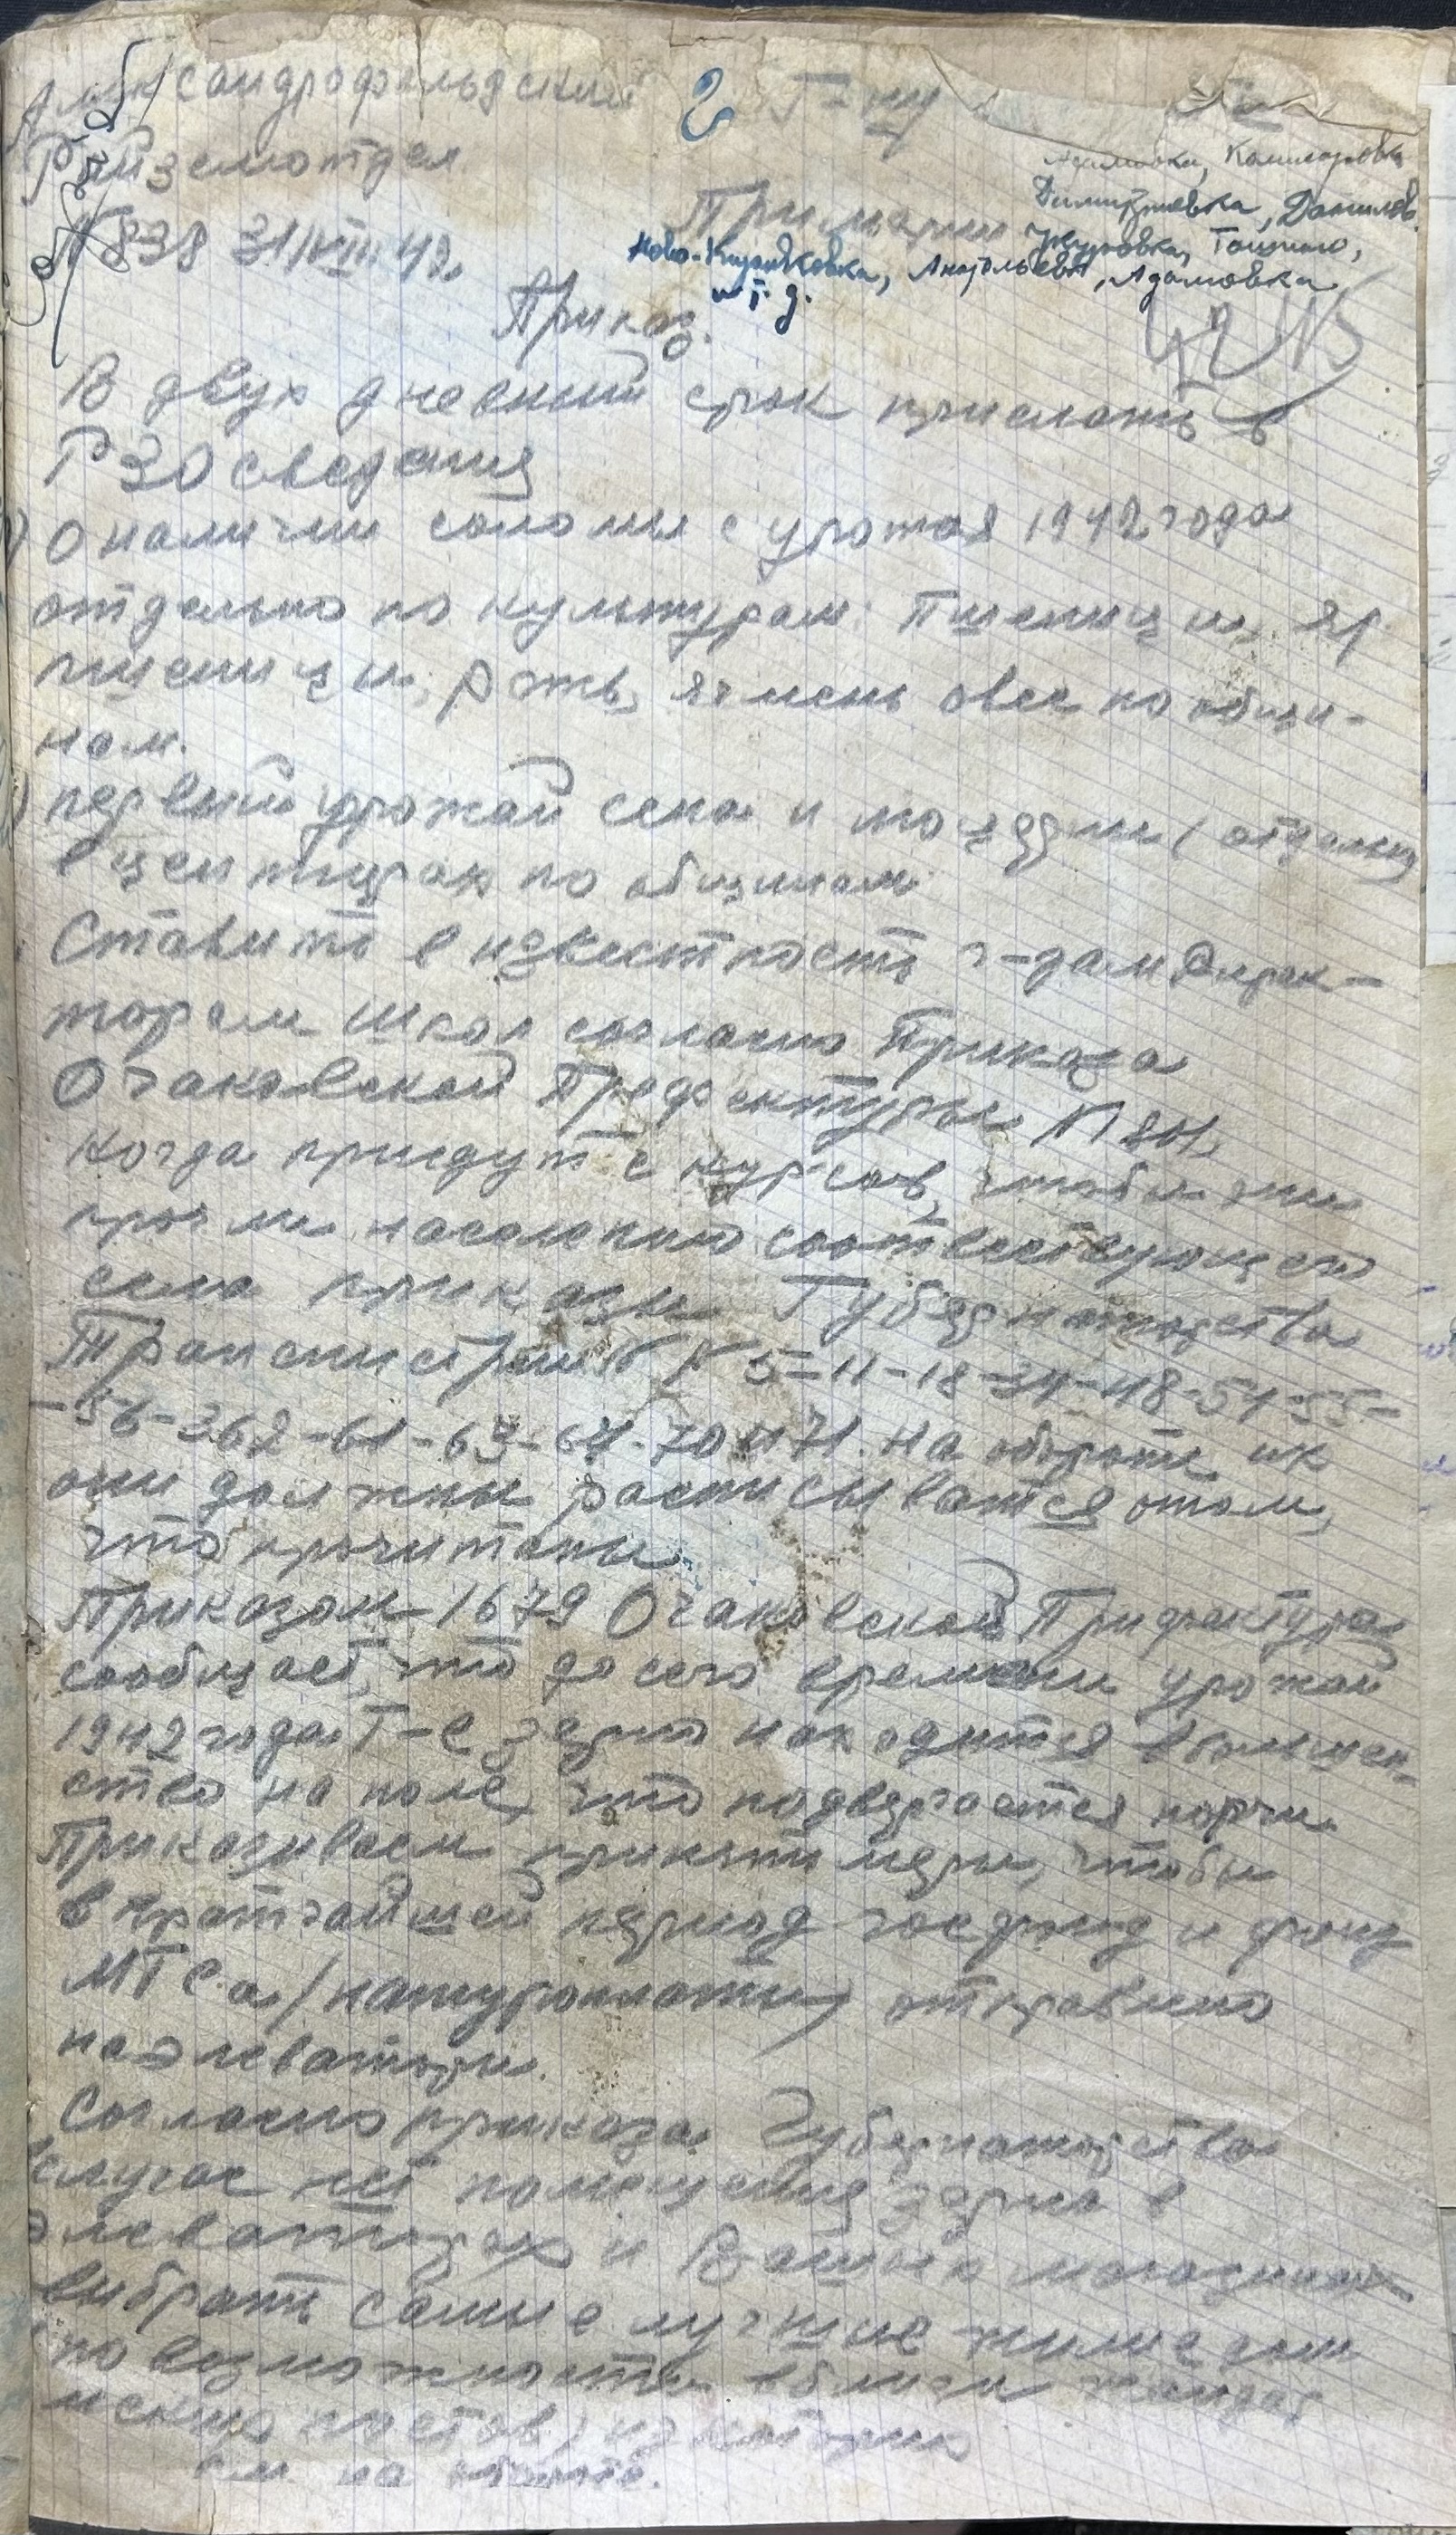 Александрофельдский
Райземотдел
№ 838 31/VIII 42.
2
Г-ну
Примарии
Калиновка
Димитровка, Данилов.
Ново-, Анатольевка, Адамовка
и т. д.
Приказ.
В двух дневный срок прислать в
РЗО сведения
О наличии соломы с урожая 1942 года
отдельно по культурам: Пшеницы, яр.
пшеницы, рожь, ячмень овес по общи-
нам.
первый урожай сена и (отдельно
в центнерах по общинам
Ставить в известность г-дам Дирек-
торам школ согласно Приказа
Очаковской Префектуры № 801,
когда придут с курсов, чтобы они
прочли населению соответствующего
села приказы Губернаторства
Транснистрии № № 5-11-18-34-48-54-55-
-56-362-61-63-64-70 и 71. На обороте их
они должны расписыватся отом,
что прочитаны.
Приказом 1679 Очаковской Префектура
сообщает, что до сего времени урожай
1942 года Т-е зерно находится вбольшен-
ство на поле, что подвергается порчи.
Приказываем принять меры, чтобы
в кратчайшей период госфонд и фонд
МТСа /натуроплаты/ отправлено
на элеваторы.
Согласно приказа Губернаторства
случае нет помещения зерна в
элеваторах и Ваших магазинах
выбрать самые лучшие жилые дома
по возможности вблизи жандар
мских постов, из которых
см. на обороте.